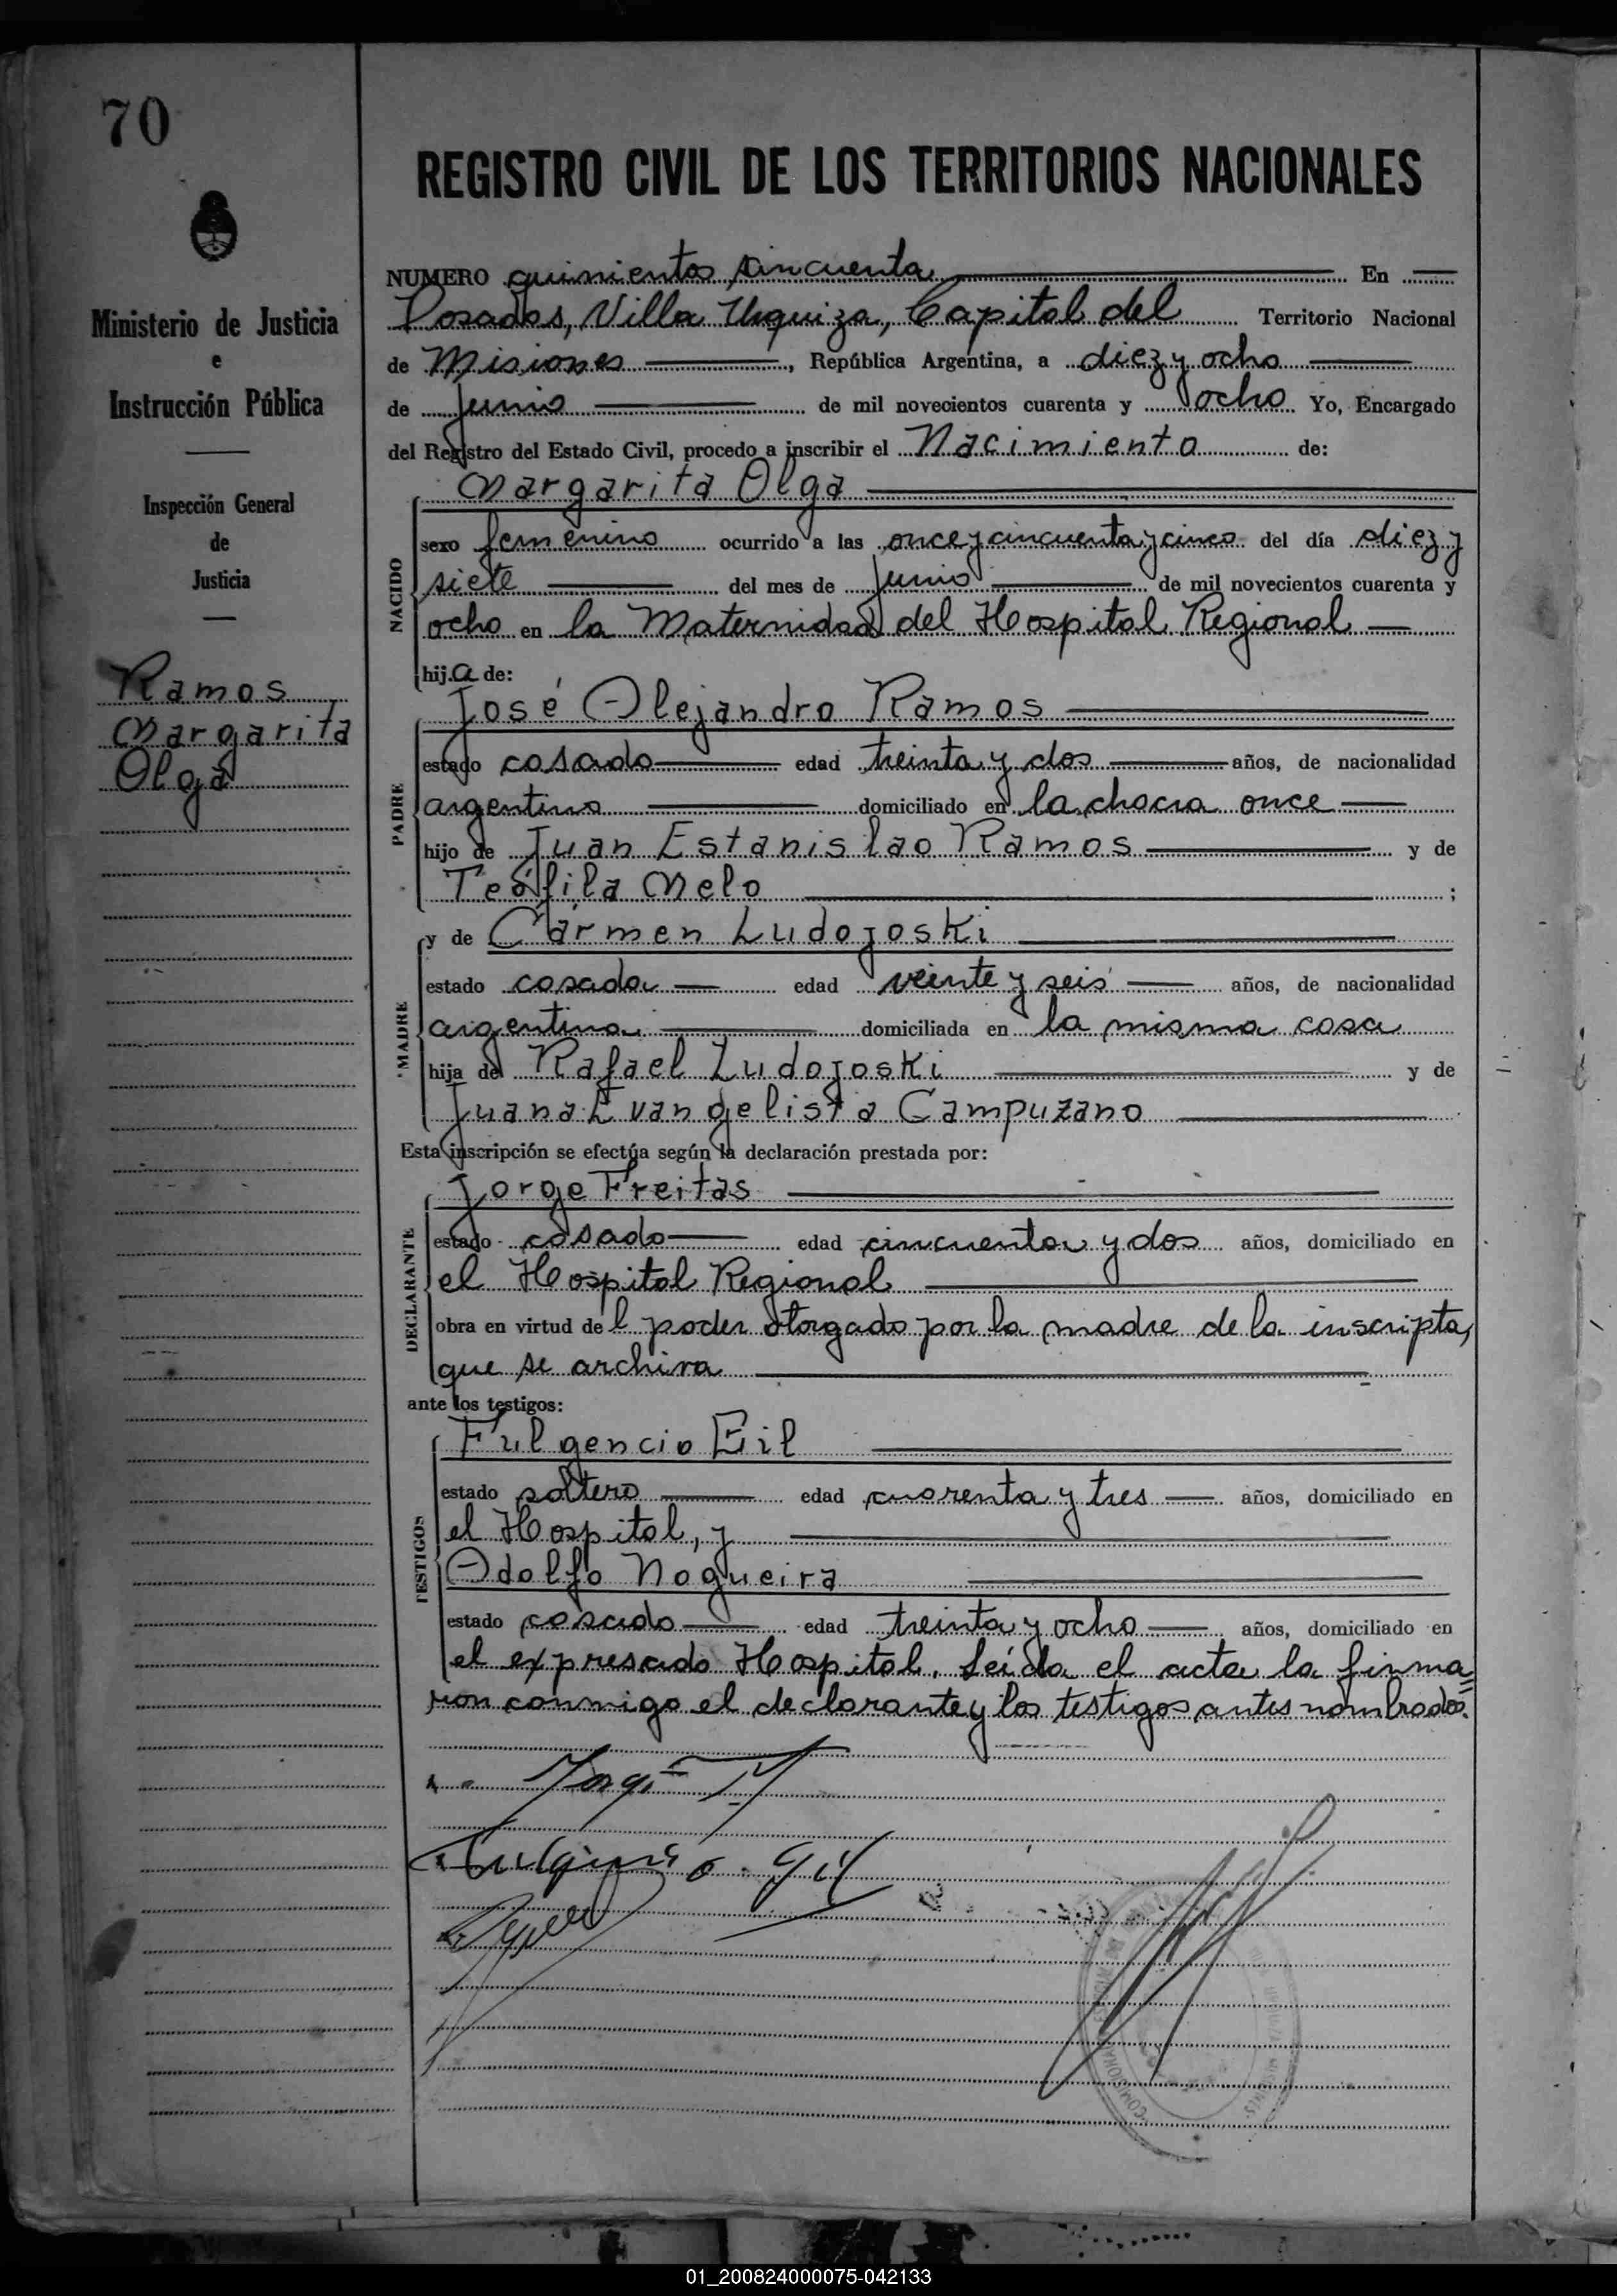 70
REGISTRO CIVIL DE LOS TERRITORIOS NACIONALES
Ministerio de Justicia
e
Instrucción Pública
Inspección General
de
Justicia
Ramos
Margarita
Olga
NUMERO quinientos cincuenta En
Posadas, Villa Urquiza, Capital del Territorio Nacional
de Misiones, República Argentina, a diez y ocho
de junio de mil novecientos cuarenta y ocho Yo, Encargado
del Registro del Estado Civil, procedo a inscribir el Nacimiento de:
Margarita Olga
NACIDO
sexo femenino ocurrido a las once y cincuenta y cinco del día diez y
siete del mes de junio de mil novecientos cuarenta y
ocho en la Maternidad del Hospital Regional
hija de:
José Alejandro Ramos
PADRE
estado casado edad treinta y dos años, de nacionalidad
argentino domiciliado en la chacra once
hijo de Juan Estanislao Ramos y de
Teófila Melo ;
MADRE
y de Cármen Ludojoski
estado casada edad veinte y seis años, de nacionalidad
argentina domiciliada en la misma casa
hija de Rafael Ludojoski y de
Juana Evangelista Campuzano
Esta inscripción se efectúa según la declaración prestada por:
Jorge Freitas
DECLARANTE
estado casado edad cincuenta y dos años, domiciliado en
el Hospital Regional
obra en virtud del poder otorgado por la madre de la inscripta,
que se archiva
ante los testigos:
Fulgencio Gil
TESTIGOS
estado soltero edad cuarenta y tres años, domiciliado en
el Hospital, y
Adolfo Nogueira
estado casado edad treinta y ocho años, domiciliado en
el expresado Hospital. Leída el acta la firma=
ron conmigo el declarante y los testigos antes nombrados.
Fulgencio Gil
01_200824000075-042133